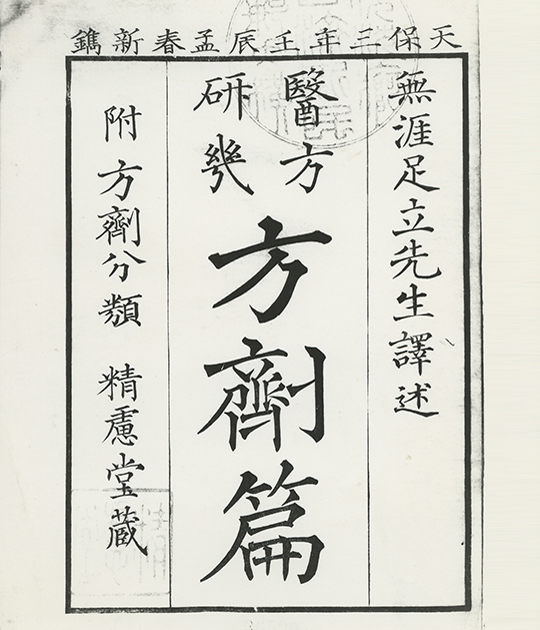 天保三年壬辰孟春新鐫
無涯足立先生譯述
醫方
研幾
方劑篇
附方劑分類 精慮堂蔵